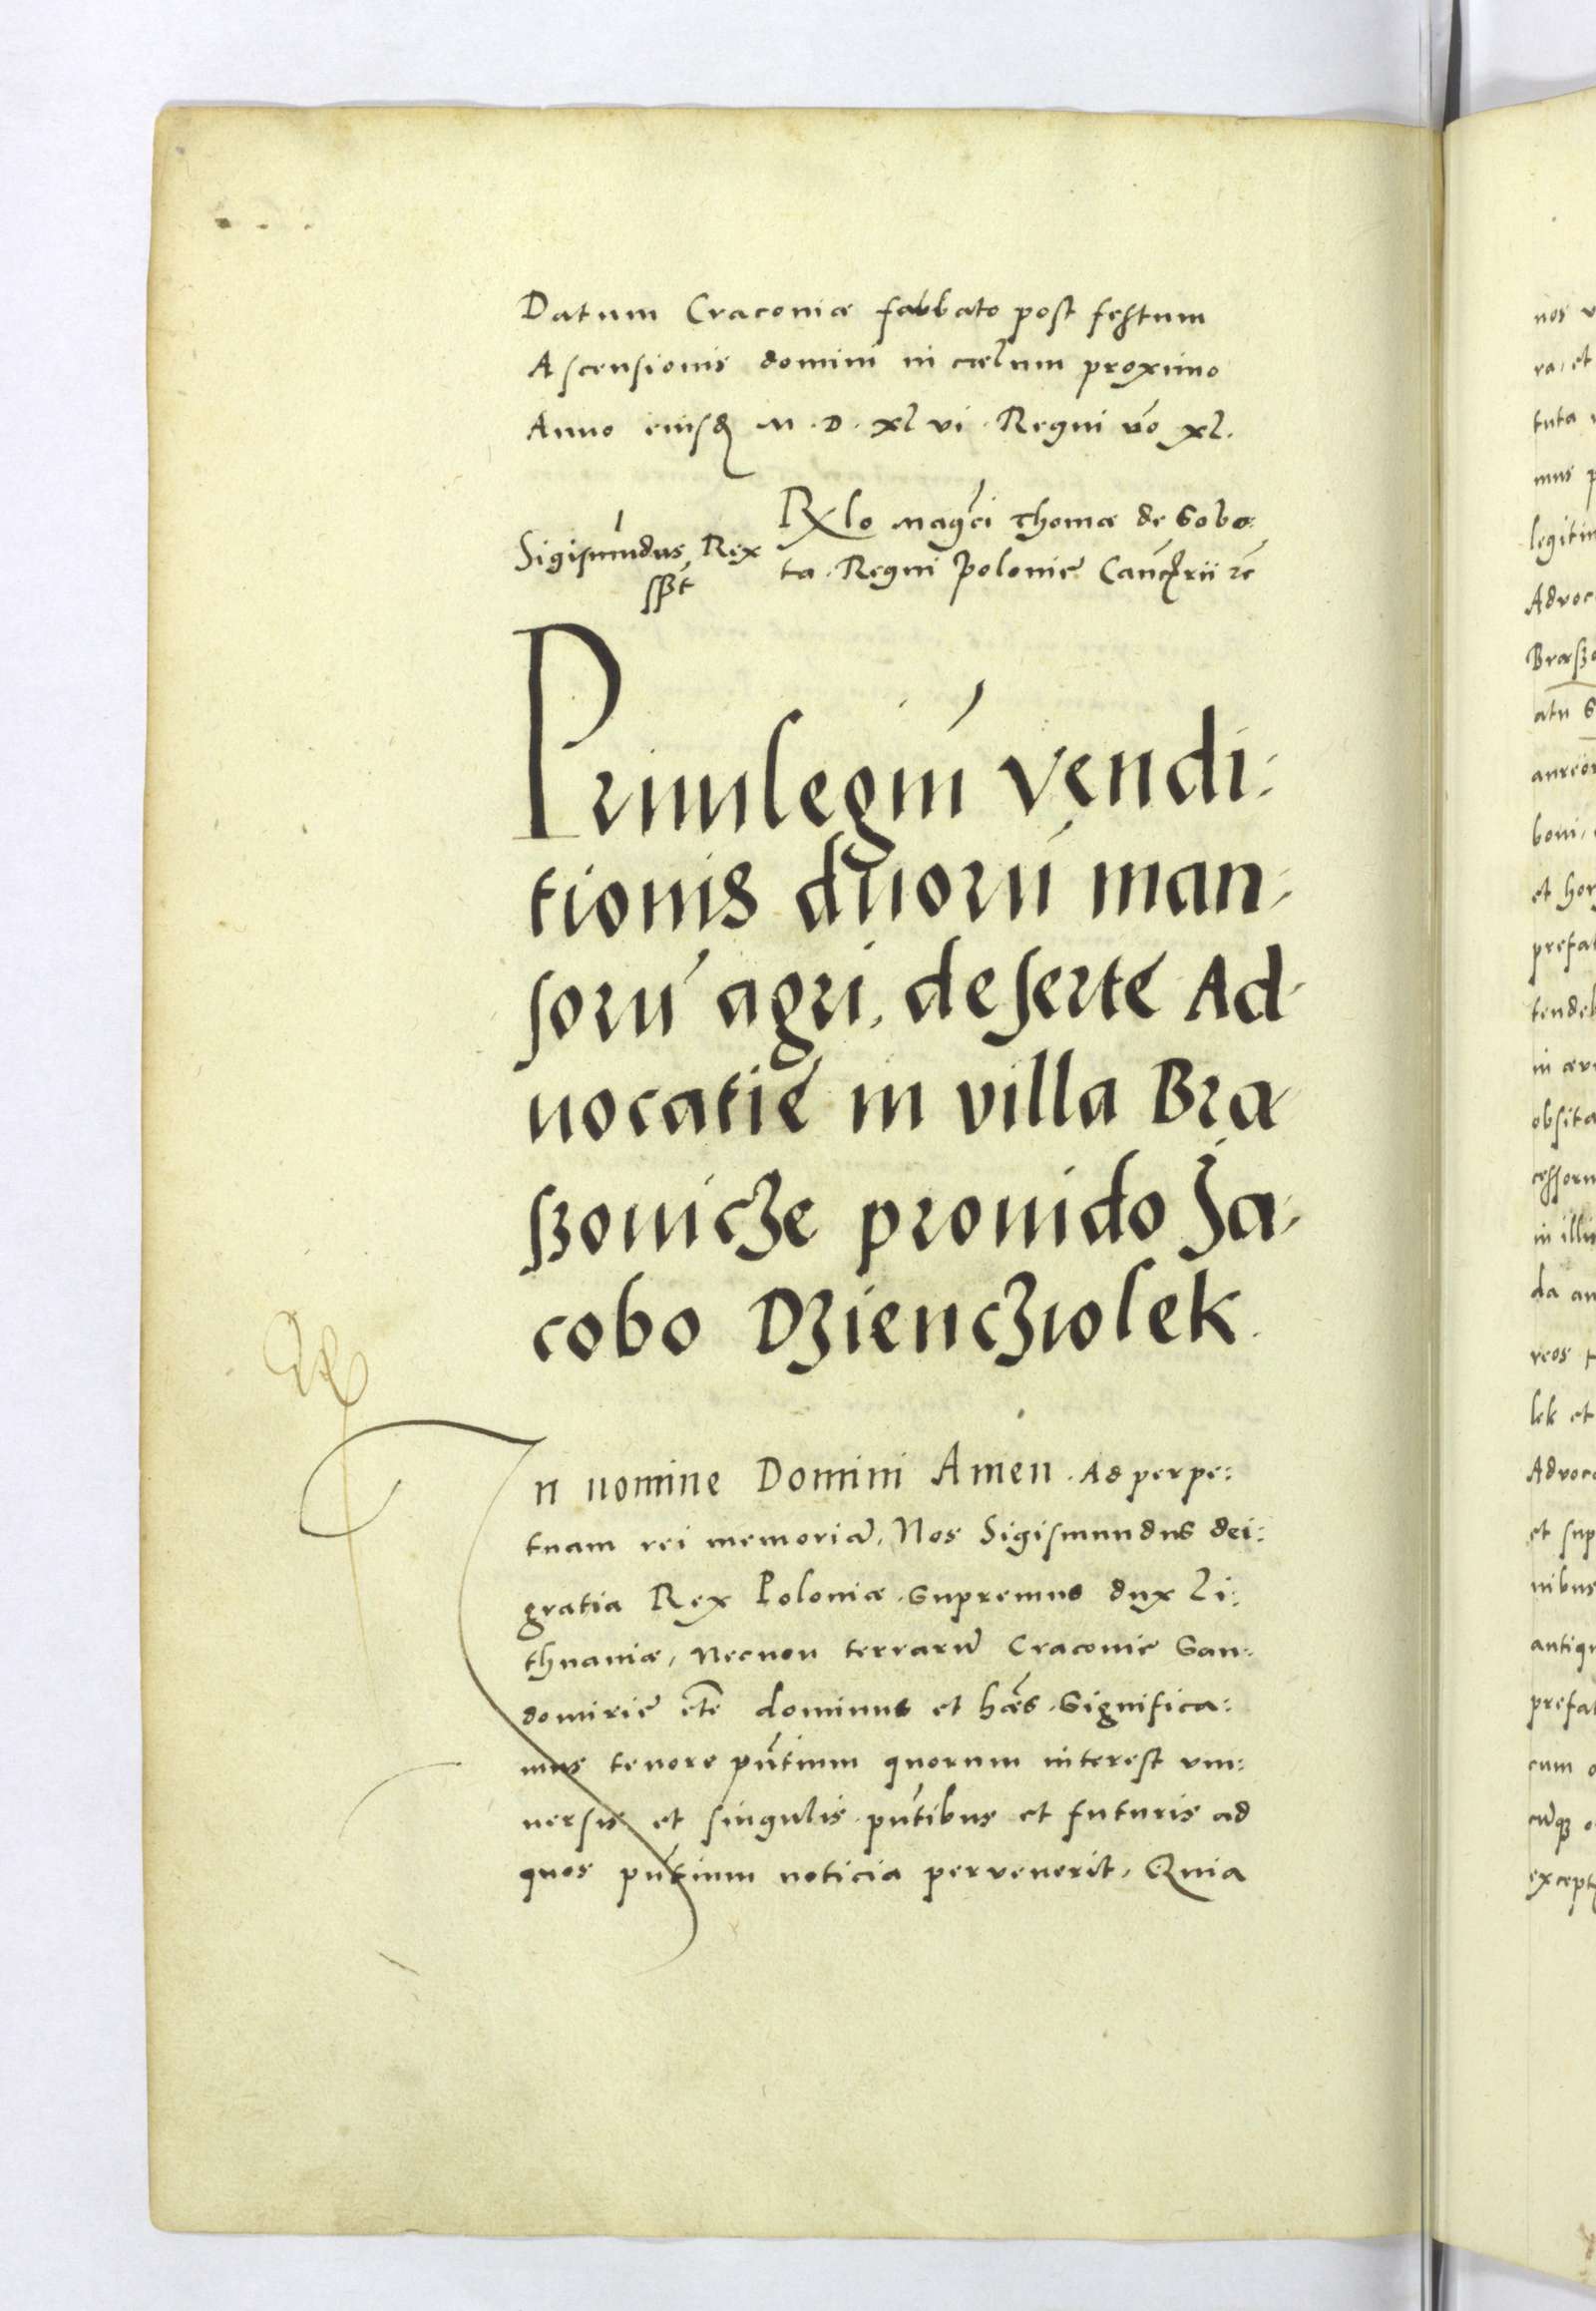 Datum Cracoviæ sabbato post festum
Ascensionis domini in cælum proximo
Anno eiusdꝫ M. D. xlvi. Regni vo xl.
Sigismu̅dus Rex
sp̅t
Relo̅ Mag̅ci Thomæ de Sobo:
ta. Regni Polonię Canc̅rii ꝛc̅
Priuilegiu̅ Vendi:
tionis duoru̅ man:
soru̅ agri, desertę Ad:
uocatię in villa Bra
szouicze prouido Ja:
cobo Dzienczwlek.
In nomine Domini Amen. Ad perpe:
tuam rei memoria̅. Nos Sigismundus dei:
gratia Rex Poloniæ. Supremus dux Li:
thuaniæ, Necnon terraru̅ Cracovię San:
domirię etc̅ dominus et hæ̅s. Significa:
mus tenore pn̅tium quorum interest vni:
uersis et singulis pn̅tibus et futuris ad
quos pn̅tium noticia pervenerit. Quia
nos v
ra, et
tuta
mus p
legitim
Advoc
Brasz
atu S
aureor
boni,
et hor
prefat
tendeb
in ær
obsita
cessoru
in illis
da an
reos
lek et
Advoc
et sup
nibus
antiqu
prefat
cum o
cu̅qꝫ
except